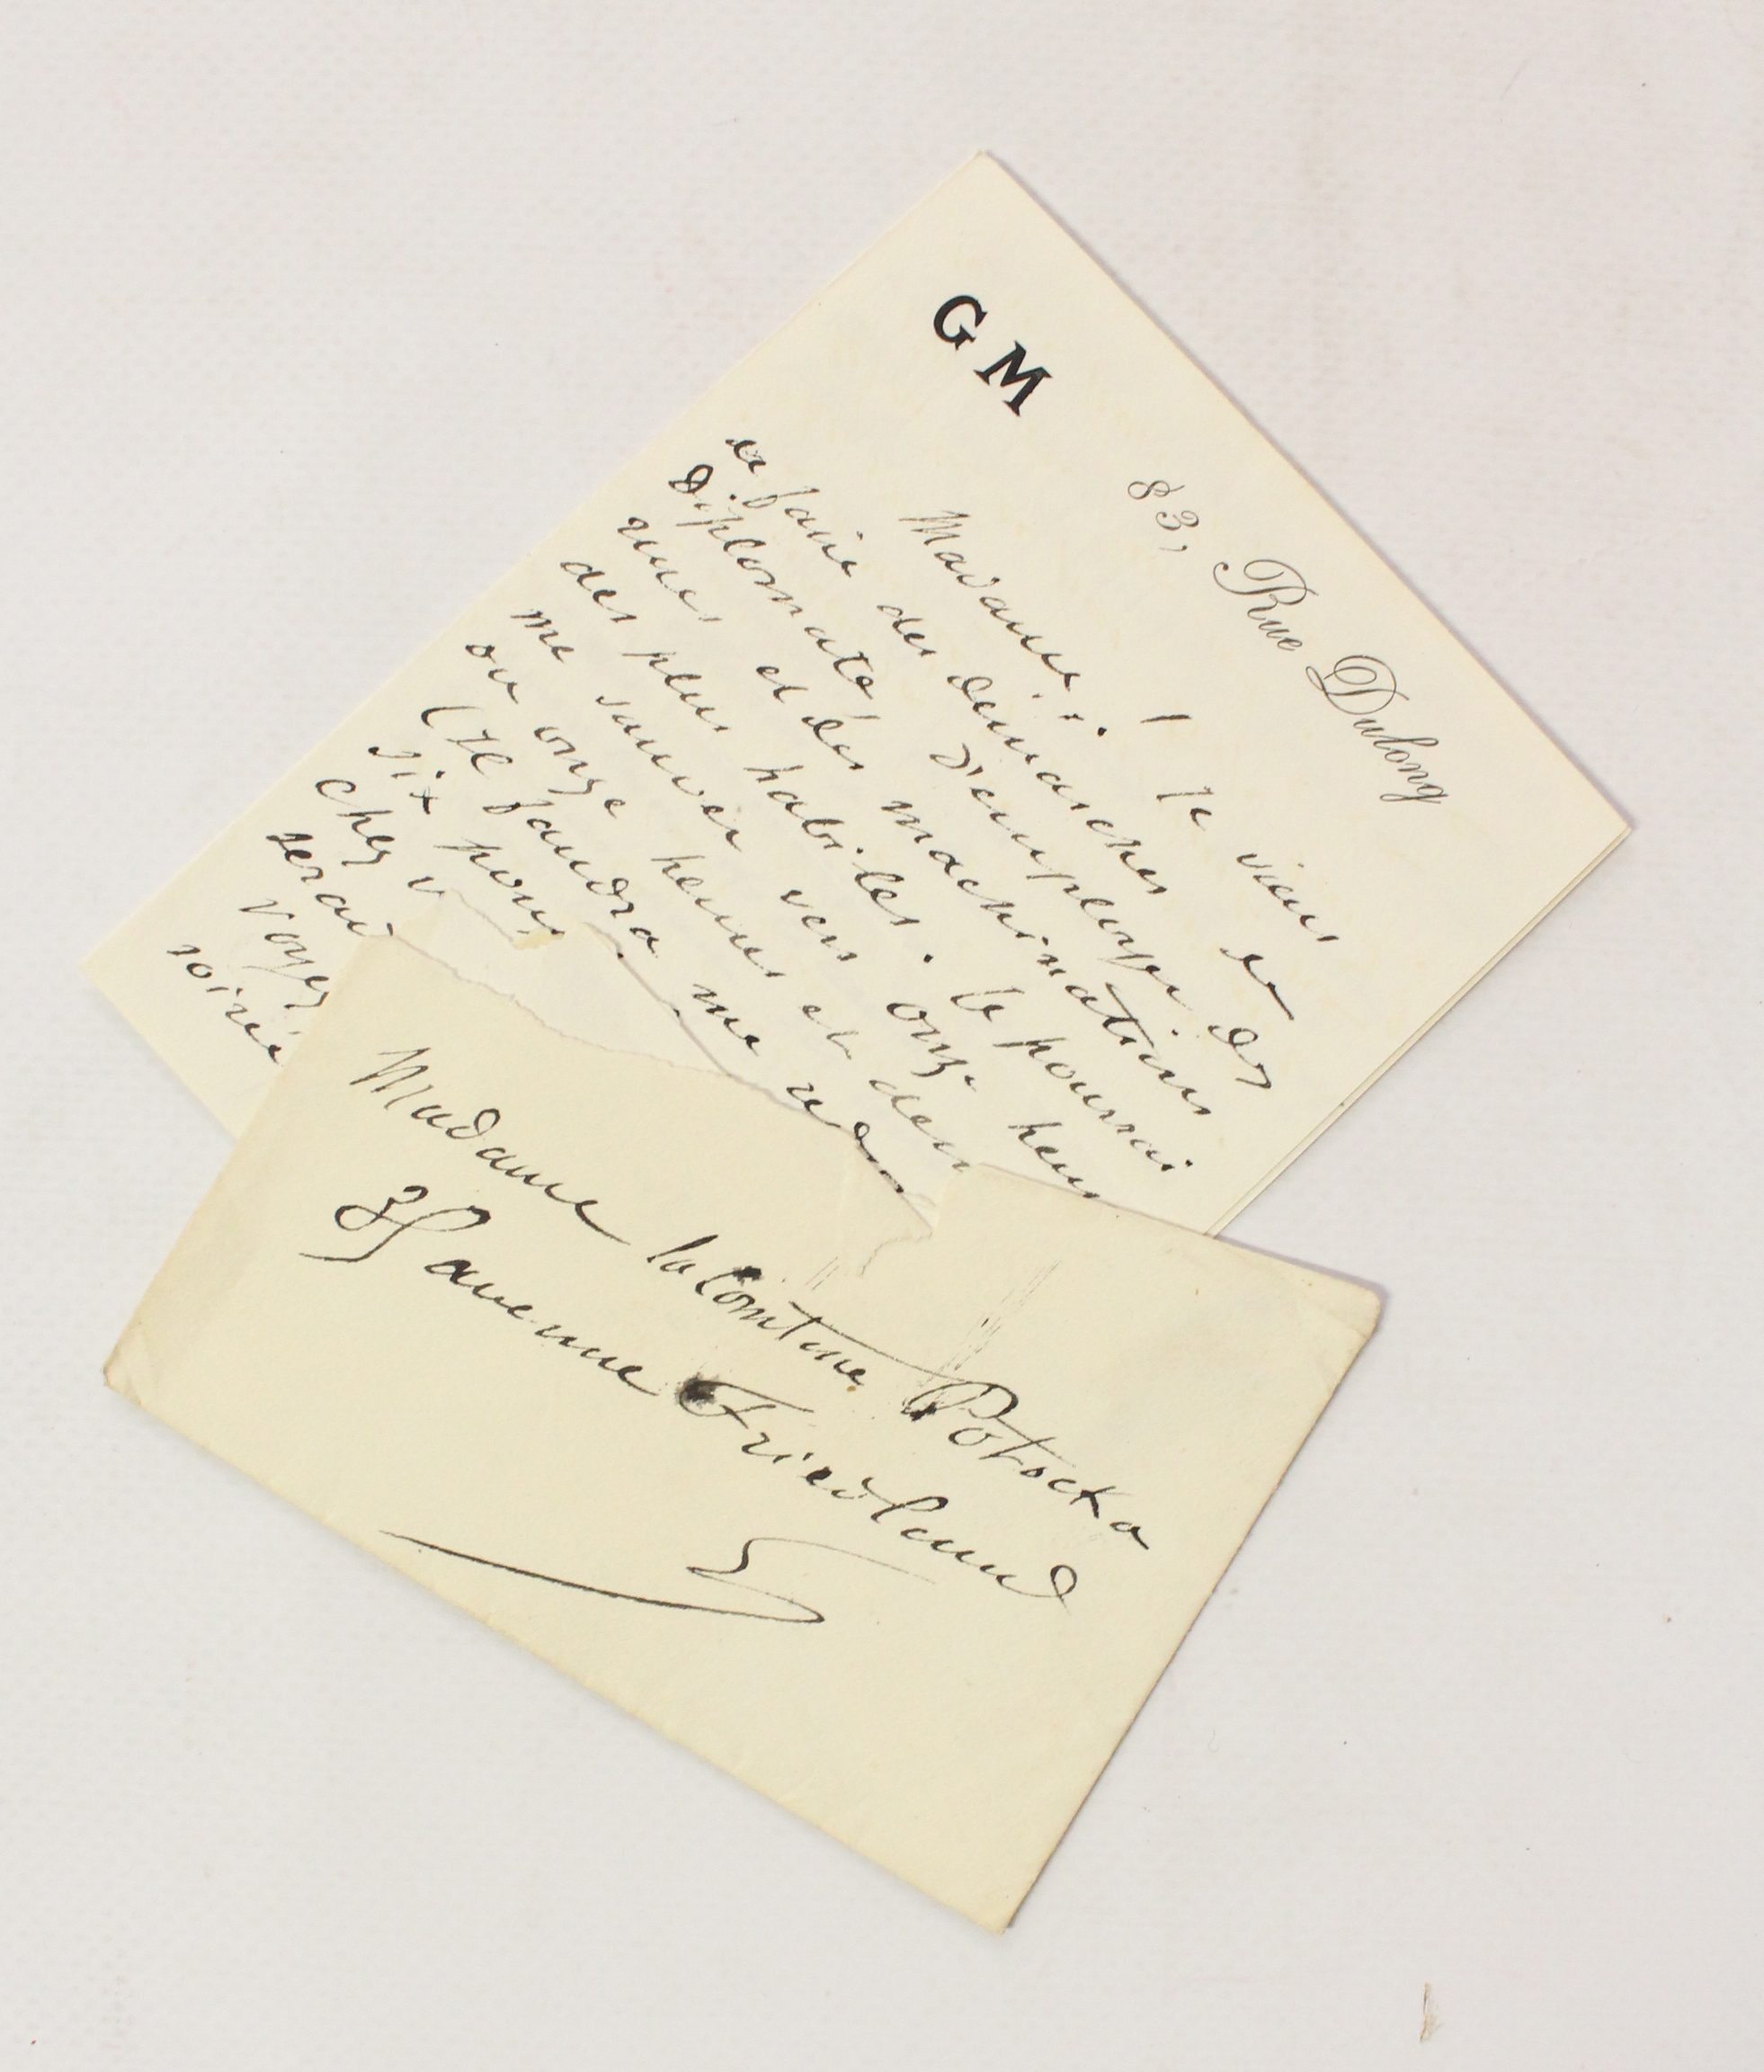 G M
83, Rue Dulong
Madame, Je viens
de faire des démarches de
diplomate, d'employer des
ruses et des machinations
des plus habiles. Je pourrai
me sauver vers onze heu
ou onze heures et dem
(Il faudra me
pour
chez v
serai
voyez
soirée
Madame la Comtesse Potocka
avenue Friedland